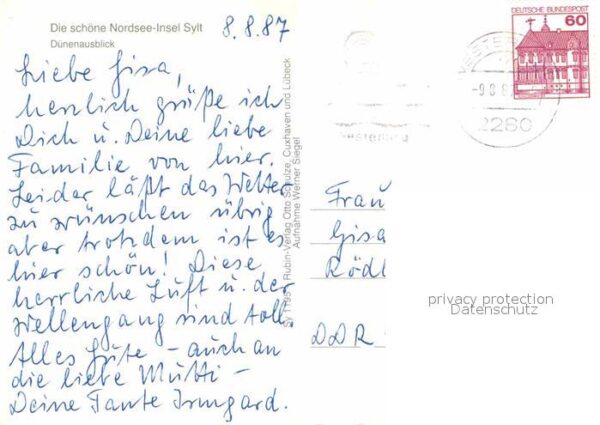 Die schöne Nordsee-Insel Sylt
Dünenausblick
8.8.87
Liebe Gisa,
herzlich grüße ich
Dich u. Deine liebe
Familie von hier.
Leider läßt das Wetter
zu wünschen übrig
aber trotzdem ist es
hier schön! Diese
herrliche Luft u. der
Wellengang sind toll.
Alles Gute – auch an
die liebe Mutti –
Deine Tante Irmgard.
Rubin-Verlag Otto Schulze, Cuxhaven und Lübeck
Aufnahme Werner Siegel
DEUTSCHE BUNDESPOST
60
2280
Frau
Gisa
DDR
privacy protection
Datenschutz